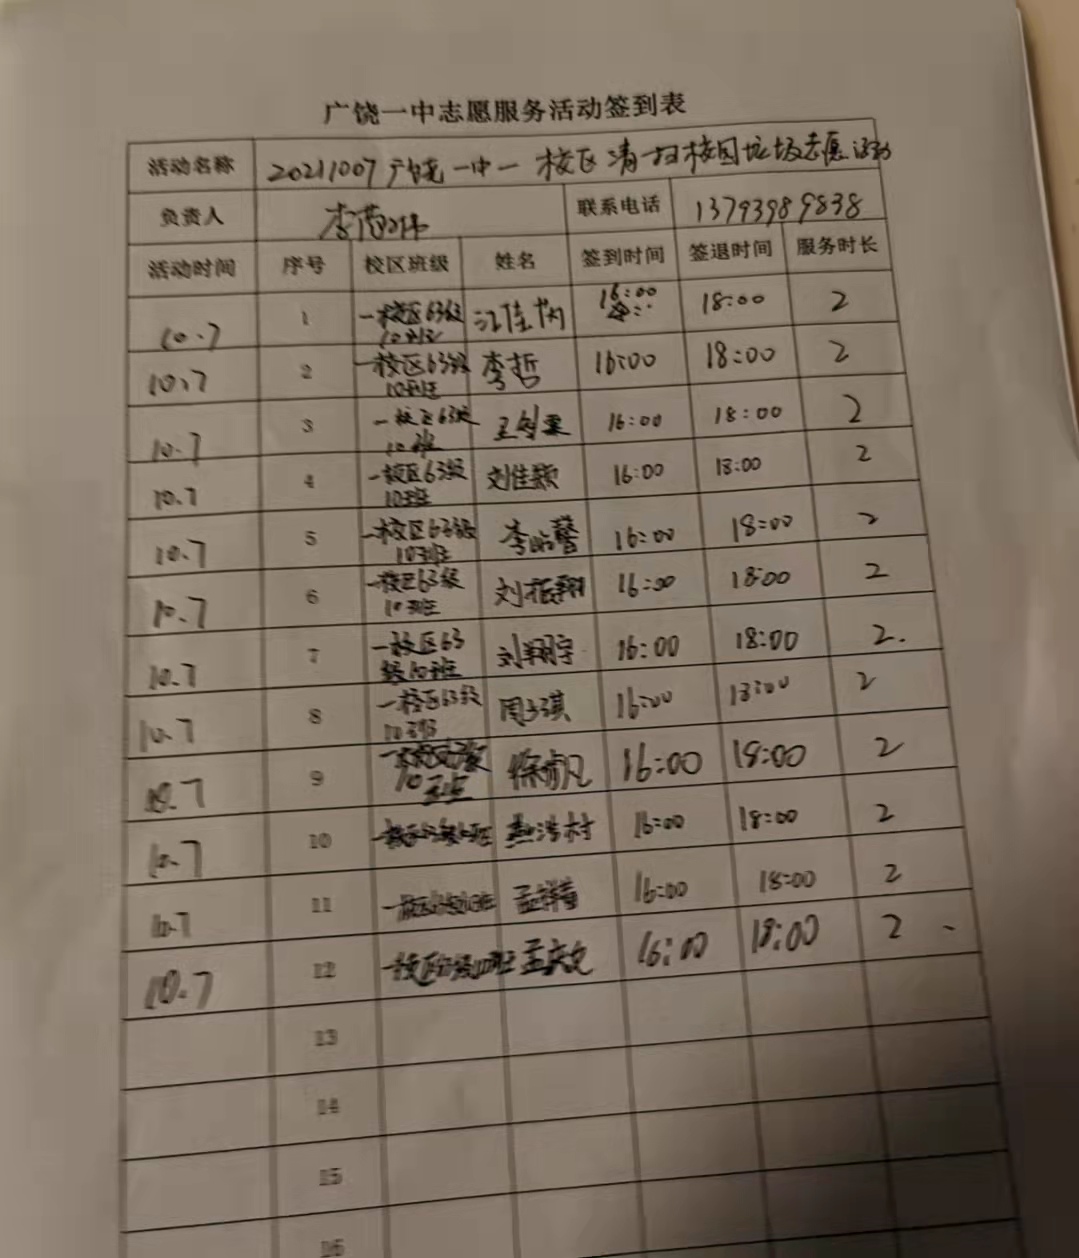 广饶一中志愿服务活动签到表
活动名称 20211007广饶一中一校区清扫校园垃圾志愿活动
负责人 李 联系电话 13793989838
活动时间 序号 校区班级 姓名 签到时间 签退时间 服务时长
10.7 1 一校区63级10班 江佳芮 16:00 18:00 2
10.7 2 一校区63级10班 李哲 16:00 18:00 2
10.7 3 一校区63级10班 王 16:00 18:00 2
10.7 4 一校区63级10班 刘佳颖 16:00 18:00 2
10.7 5 一校区63级10班 李 馨 16:00 18:00 2
10.7 6 一校区63级10班 刘振翔 16:00 18:00 2
10.7 7 一校区63级10班 刘翔宇 16:00 18:00 2.
10.7 8 一校区63级10班 周子琪 16:00 18:00 2
10.7 9 10班 徐 凡 16:00 18:00 2
10.7 10 一校区 班 燕浩村 16:00 18:00 2
10.7 11 一校区 班 孟祥 16:00 18:00 2
10.7 12 一校区 班 孟庆文 16:00 18:00 2
13
14
15
16